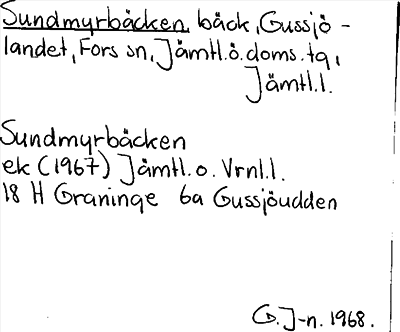 Sundmyrbäcken, bäck, Gussjö-
landet, Fors sn, Jämtl.ö.doms.tg,
Jämtl.l.
Sundmyrbäcken
ek (1967) Jämtl. o. Vrnl.l.
18 H Graninge 6a Gussjöudden
G.J-n. 1968.